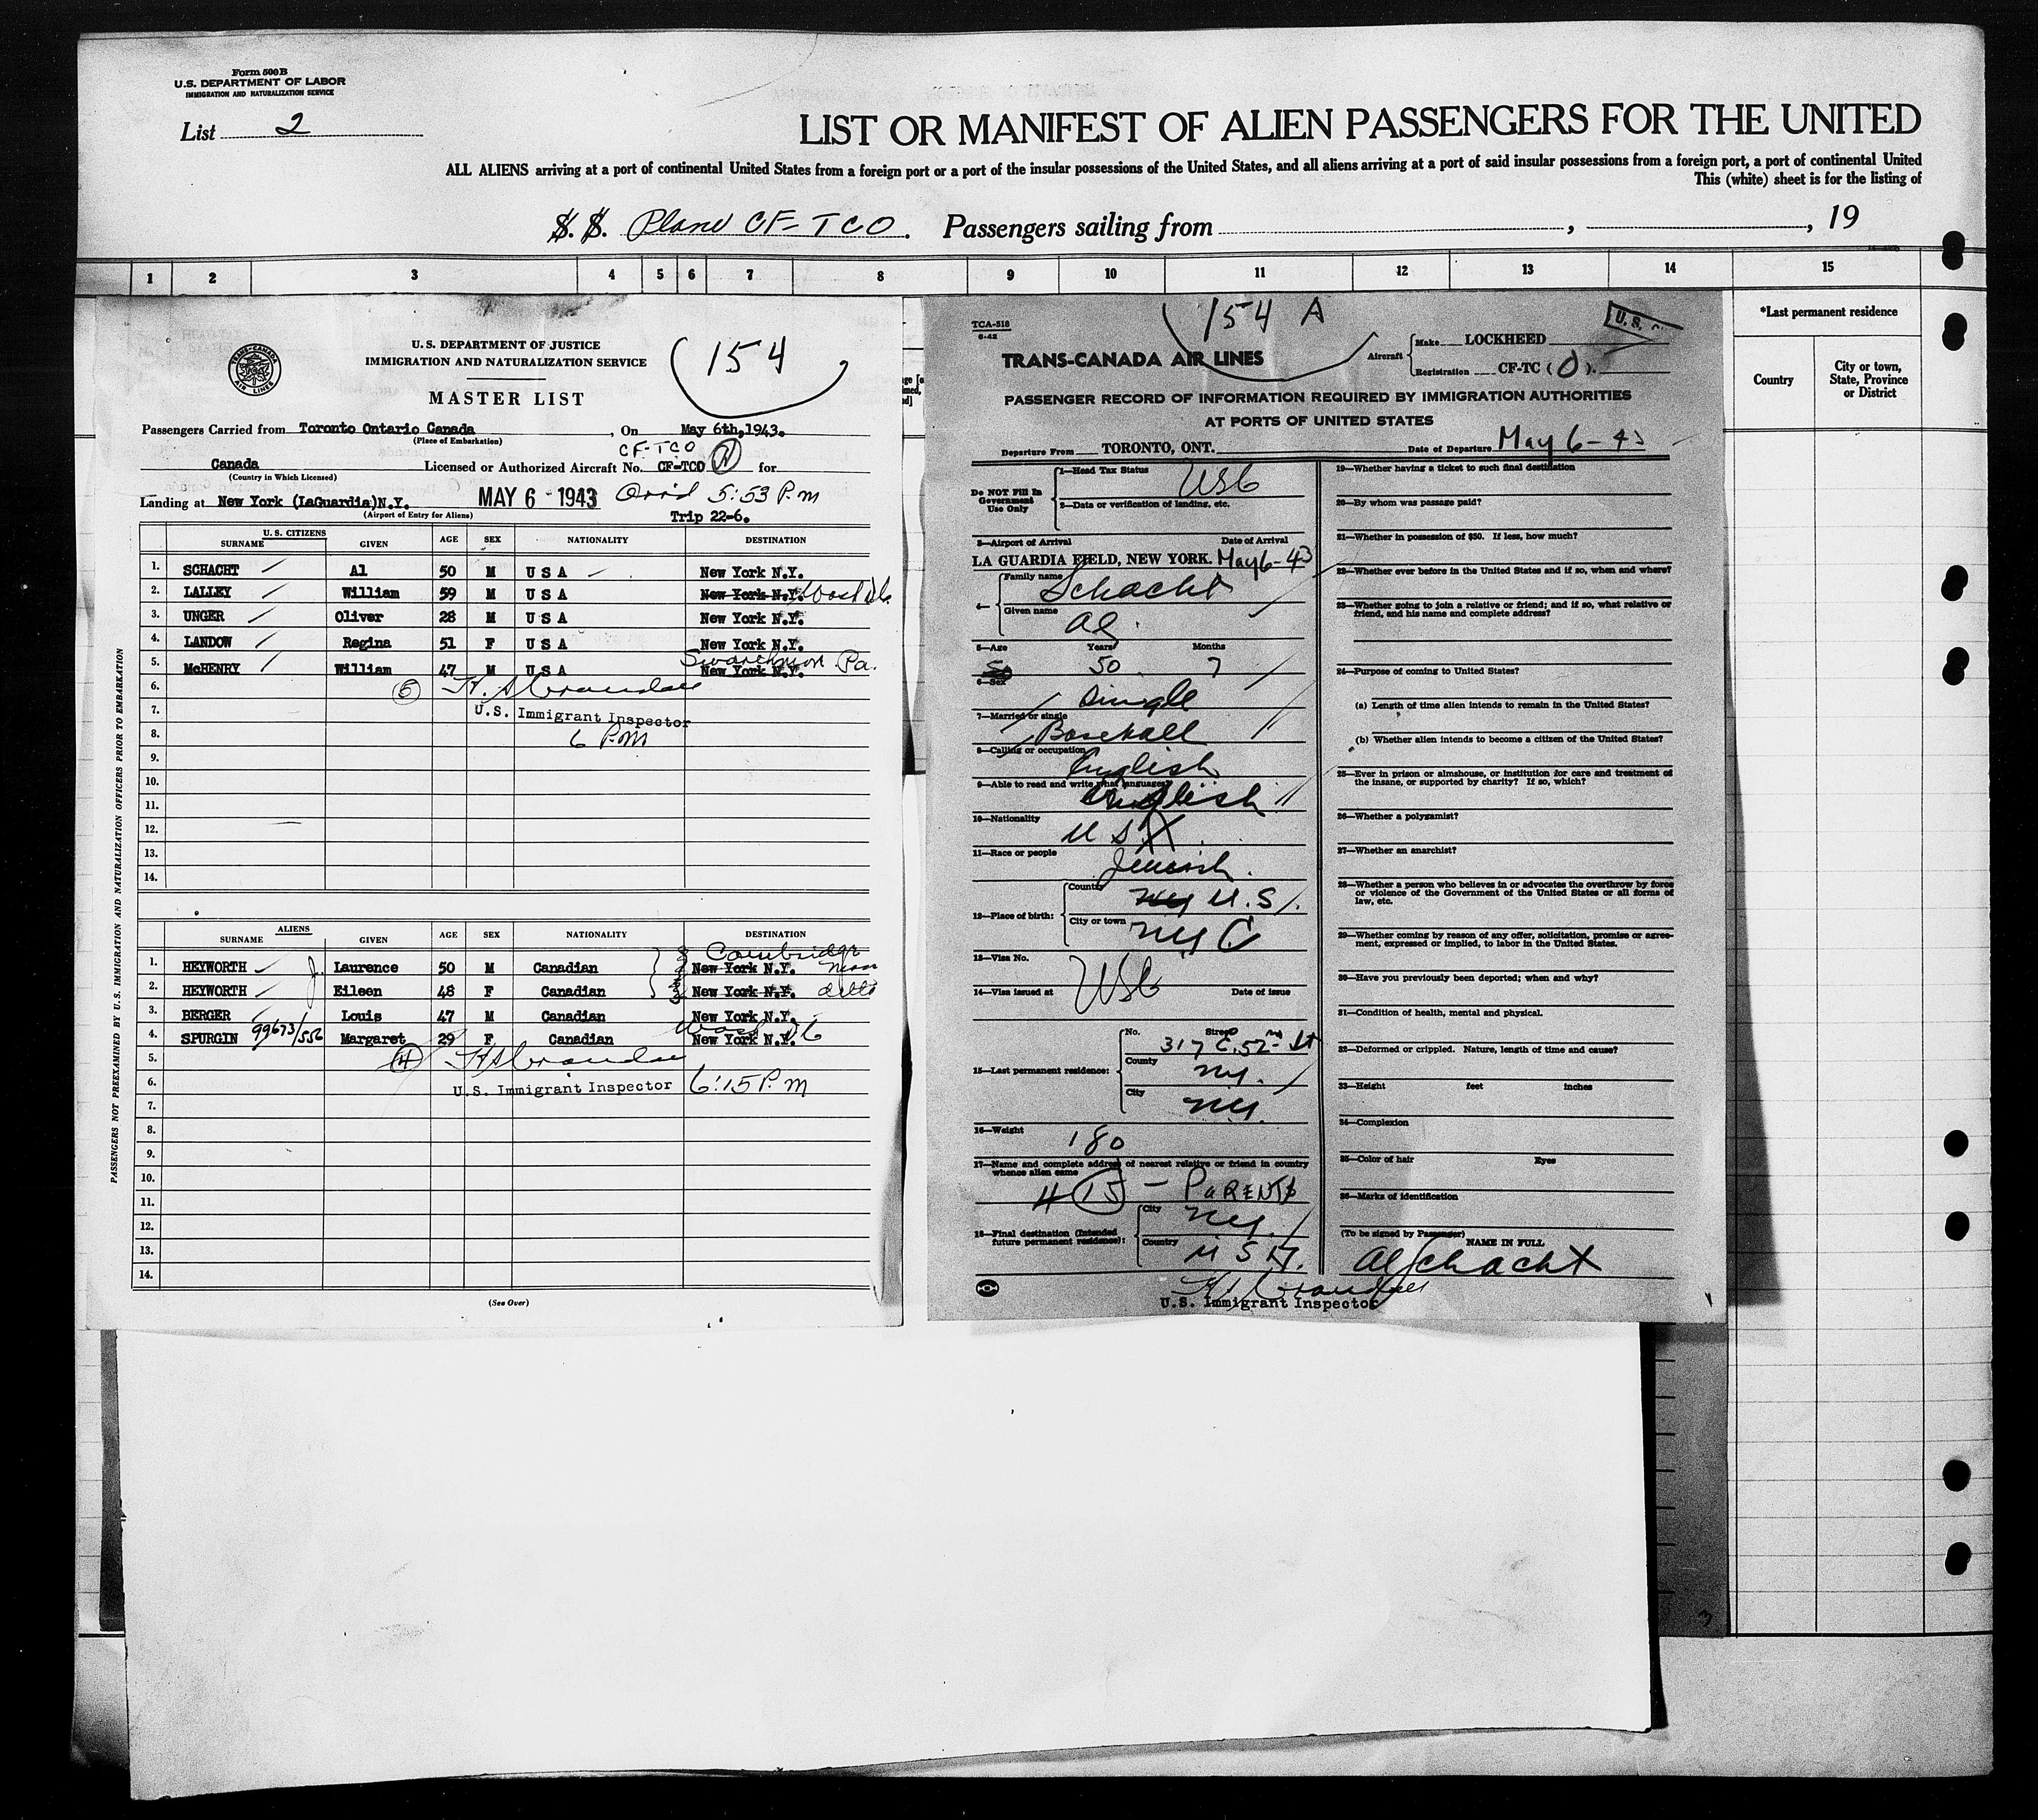 Form 500B
U.S. DEPARTMENT OF LABOR
IMMIGRATION AND NATURALIZATION SERVICE
List 2
LIST OR MANIFEST OF ALIEN PASSENGERS FOR THE UNITED
ALL ALIENS arriving at a port of continental United States from a foreign port or a port of the insular possessions of the United States, and all aliens arriving at a port of said insular possessions from a foreign port, a port of continental United
This (white) sheet is for the listing of
S. S. Plane CF-TCO. Passengers sailing from , , 19
1 2 3 4 5 6 7 8 9 10 11 12 13 14 15
*Last permanent residence
Country
City or town, State, Province or District
TRANS-CANADA AIR LINES
U.S. DEPARTMENT OF JUSTICE
IMMIGRATION AND NATURALIZATION SERVICE
154
MASTER LIST
Passengers Carried from Toronto Ontario Canada , On May 6th,1943.
(Place of Embarkation)
CF-TCO
Canada Licensed or Authorized Aircraft No. CF-TCO for
(Country in Which Licensed)
Landing at New York (LaGuardia)N.Y. MAY 6 - 1943 Arr'd 5:53 P.m
(Airport of Entry for Aliens)
Trip 22-6.
U. S. CITIZENS
SURNAME GIVEN AGE SEX NATIONALITY DESTINATION
1. SCHACHT Al 50 M U S A New York N.Y.
2. LALLEY William 59 M U S A New York N.Y. Wash DC.
3. UNGER Oliver 28 M U S A New York N.Y.
4. LANDOW Regina 51 F U S A New York N.Y.
Swarthmore Pa.
5. McHENRY William 47 M U S A New York N.Y.
6. (5)
7. U.S. Immigrant Inspector
8. 6 P.m
9.
10.
11.
12.
13.
14.
ALIENS
SURNAME GIVEN AGE SEX NATIONALITY DESTINATION
Cambridge
1. HEYWORTH J. Laurence 50 M Canadian New York N.Y. Mass
2. HEYWORTH Eileen 48 F Canadian New York N.Y. ditto
3. BERGER Louis 47 M Canadian New York N.Y.
Wash DC
4. SPURGIN 99673/556 Margaret 29 F Canadian New York N.Y.
5. (4)
6. U.S. Immigrant Inspector 6:15 P.m
7.
8.
9.
10.
11.
12.
13.
14.
(See Over)
PASSENGERS NOT PREEXAMINED BY U.S. IMMIGRATION AND NATURALIZATION OFFICERS PRIOR TO EMBARKATION
TCA-518
6-42
154 A
U.S.
TRANS-CANADA AIR LINES
Aircraft Make LOCKHEED
Registration CF-TC (O).
PASSENGER RECORD OF INFORMATION REQUIRED BY IMMIGRATION AUTHORITIES
AT PORTS OF UNITED STATES
Departure From TORONTO, ONT. Date of Departure May 6-43
Do NOT Fill In Government Use Only
1—Head Tax Status USC
2—Data or verification of landing, etc.
3—Airport of Arrival Date of Arrival
LA GUARDIA FIELD, NEW YORK. May 6-43
4— Family name Schacht
Given name Al
5—Age Years Months
50 7
6—Sex
Single
7—Married or single
Baseball
8—Calling or occupation
English
9—Able to read and write what language?
English
10—Nationality
U S A
11—Race or people
Jewish.
12—Place of birth: Country NY U.S.
City or town NY C
13—Visa No.
USC
14—Visa issued at Date of issue
15—Last permanent residence: No. Street 317 E. 52nd St
County NY.
City NY.
16—Weight
180
17—Name and complete address of nearest relative or friend in country whence alien came
# 15 — PARENTS
18—Final destination (Intended future permanent residence): City NY.
Country U S A.
U.S. Immigrant Inspector
19—Whether having a ticket to such final destination
20—By whom was passage paid?
21—Whether in possession of $50. If less, how much?
22—Whether ever before in the United States and if so, when and where?
23—Whether going to join a relative or friend; and if so, what relative or friend, and his name and complete address?
24—Purpose of coming to United States?
(a) Length of time alien intends to remain in the United States?
(b) Whether alien intends to become a citizen of the United States?
25—Ever in prison or almshouse, or institution for care and treatment of the insane, or supported by charity? If so, which?
26—Whether a polygamist?
27—Whether an anarchist?
28—Whether a person who believes in or advocates the overthrow by force or violence of the Government of the United States or all forms of law, etc.
29—Whether coming by reason of any offer, solicitation, promise or agreement, expressed or implied, to labor in the United States.
30—Have you previously been deported; when and why?
31—Condition of health, mental and physical.
32—Deformed or crippled. Nature, length of time and cause?
33—Height feet inches
34—Complexion
35—Color of hair Eyes
36—Marks of identification
(To be signed by Passenger)
NAME IN FULL
Al Schacht
3